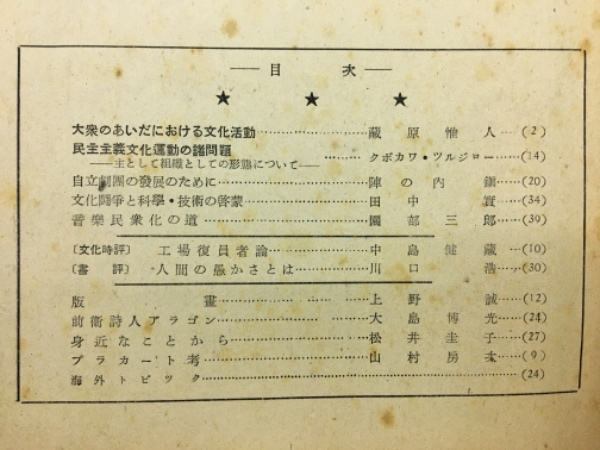 目次
★ ★ ★
大衆のあいだにおける文化活動……藏原惟人…(2)
民主主義文化運動の諸問題
——主として組織としての形態について——……クボカワ・ツルジロー…(14)
自立劇團の發展のために……陣の內鎭…(20)
文化鬪爭と科學・技術の啓蒙……田中實…(34)
音樂民衆化の道……園部三郎…(39)
〔文化時評〕工場復員者論……中島健藏…(10)
〔書評〕人間の愚かさとは……川口浩…(30)
版畫……上野誠…(12)
前衛詩人アラゴン……大島博光…(24)
身近なことから……松井圭子…(27)
プラカート考……山村房次…(9)
海外トピック……(24)